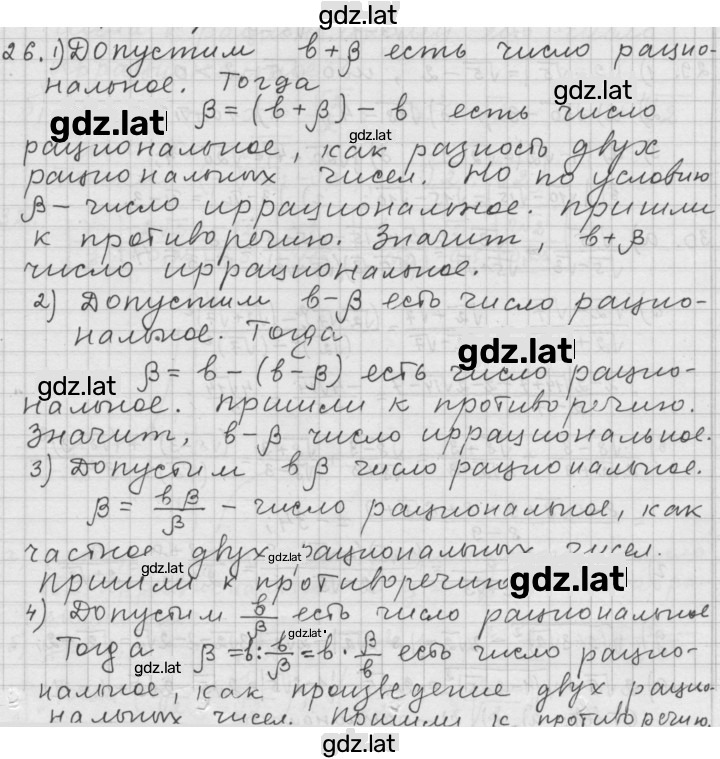 gdz.lat
26. 1) Допустим в+β есть число рацио-
нальное. Тогда
gdz.lat
β = (в+β) - в есть число
gdz.lat
gdz.lat
рациональное, как разность двух
рациональных чисел. Но по условию
β - число иррациональное. пришли
к противоречию. Значит, в+β
число иррациональное.
2) Допустим в-β есть число рацио-
нальное. Тогда
gdz.lat
β = в - (в-β) есть число рацио-
gdz.lat
нальное. пришли к противоречию.
Значит, в-β число иррациональное.
3) Допустим вβ число рациональное.
β = вβ/β - число рациональное, как
частное двух рациональных чисел.
gdz.lat
пришли к противоречию
gdz.lat
gdz.lat
4) Допустим в/β есть число рациональное
gdz.lat
Тогда β = в : в/β = в · β/в есть число рацио-
gdz.lat
нальное, как произведение двух рацио-
нальных чисел. пришли к противоречию.
gdz.lat